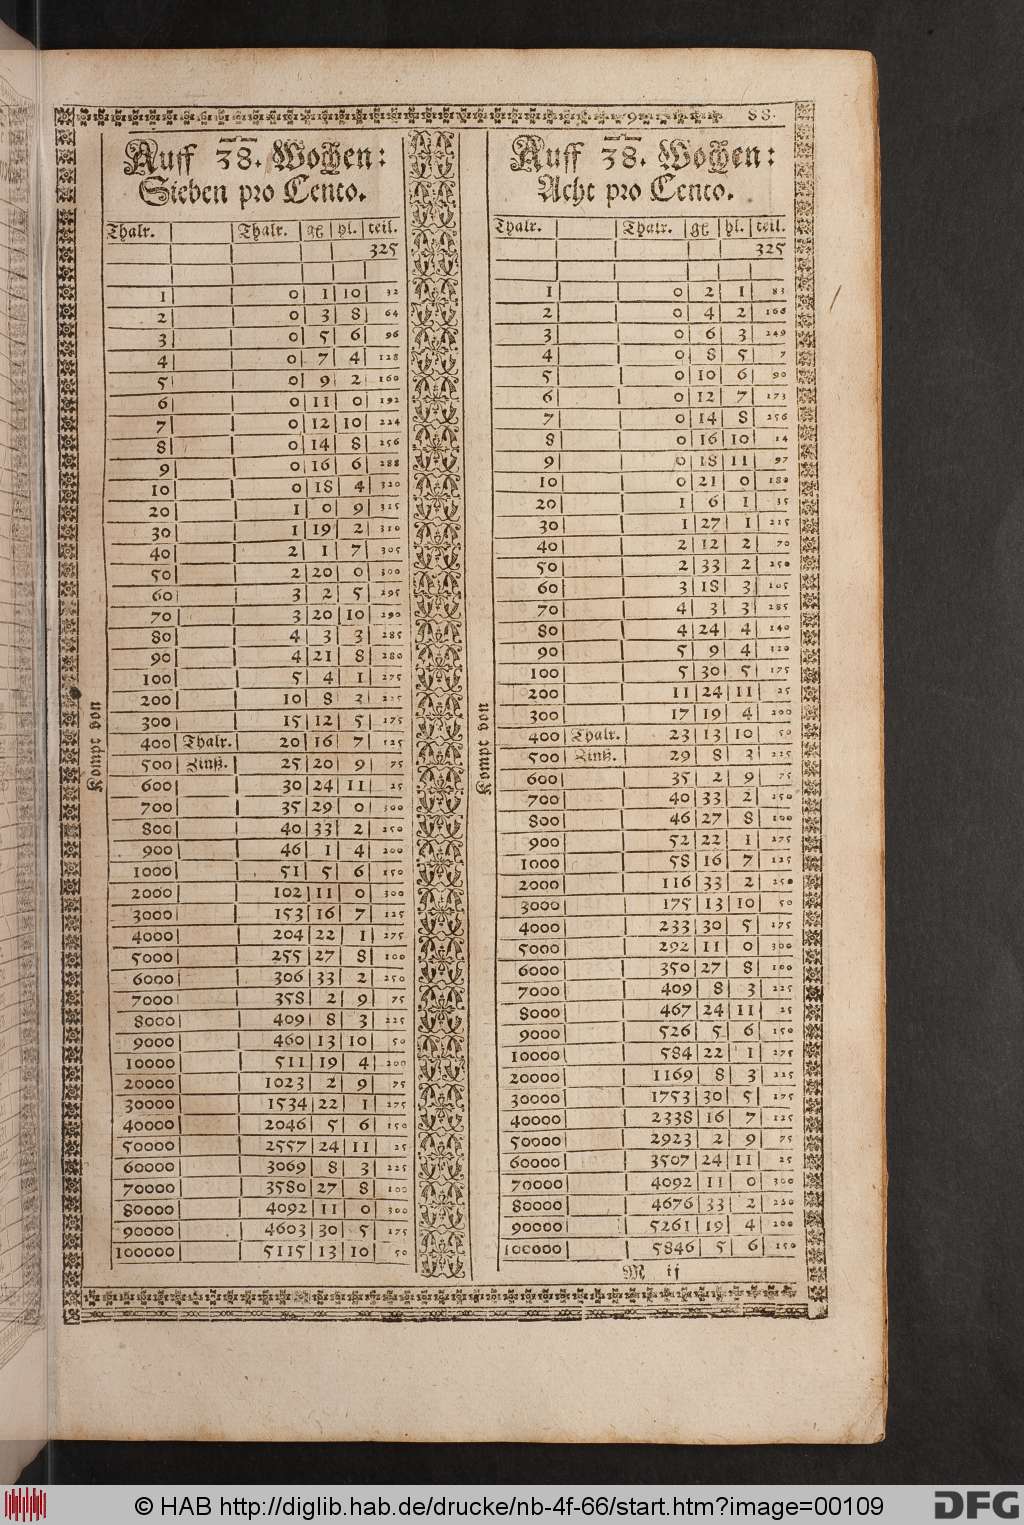 88.
Auff 38. Wochen:
Sieben pro Cento.
Thalr. Thalr. gℓ hl. teil.
325
1 0 1 10 32
2 0 3 8 64
3 0 5 6 96
4 0 7 4 128
5 0 9 2 160
6 0 11 0 192
7 0 12 10 224
8 0 14 8 256
9 0 16 6 288
10 0 18 4 320
20 1 0 9 315
30 1 19 2 310
40 2 1 7 305
50 2 20 0 300
60 3 2 5 295
70 3 20 10 290
80 4 3 3 285
90 4 21 8 280
100 5 4 1 275
200 10 8 3 225
300 15 12 5 175
400 Thalr. 20 16 7 125
500 Zinß. 25 20 9 75
600 30 24 11 25
700 35 29 0 300
800 40 33 2 250
900 46 1 4 200
1000 51 5 6 150
2000 102 11 0 300
3000 153 16 7 125
4000 204 22 1 275
5000 255 27 8 100
6000 306 33 2 250
7000 358 2 9 75
8000 409 8 3 225
9000 460 13 10 50
10000 511 19 4 200
20000 1023 2 9 75
30000 1534 22 1 275
40000 2046 5 6 150
50000 2557 24 11 25
60000 3069 8 3 225
70000 3580 27 8 100
80000 4092 11 0 300
90000 4603 30 5 175
100000 5115 13 10 50
Kompt von
Auff 38. Wochen:
Acht pro Cento.
Thalr. Thalr. gℓ hl. teil.
325
1 0 2 1 83
2 0 4 2 166
3 0 6 3 249
4 0 8 5 7
5 0 10 6 90
6 0 12 7 173
7 0 14 8 256
8 0 16 10 14
9 0 18 11 97
10 0 21 0 180
20 1 6 1 35
30 1 27 1 215
40 2 12 2 70
50 2 33 2 250
60 3 18 3 105
70 4 3 3 285
80 4 24 4 140
90 5 9 4 320
100 5 30 5 175
200 11 24 11 25
300 17 19 4 200
400 Thalr. 23 13 10 50
500 Zinß. 29 8 3 225
600 35 2 9 75
700 40 33 2 250
800 46 27 8 100
900 52 22 1 275
1000 58 16 7 125
2000 116 33 2 250
3000 175 13 10 50
4000 233 30 5 175
5000 292 11 0 300
6000 350 27 8 100
7000 409 8 3 225
8000 467 24 11 25
9000 526 5 6 150
10000 584 22 1 275
20000 1169 8 3 225
30000 1753 30 5 175
40000 2338 16 7 125
50000 2923 2 9 75
60000 3507 24 11 25
70000 4092 11 0 300
80000 4676 33 2 250
90000 5261 19 4 200
100000 5846 5 6 150
Kompt von
M ij
© HAB http://diglib.hab.de/drucke/nb-4f-66/start.htm?image=00109
DFG